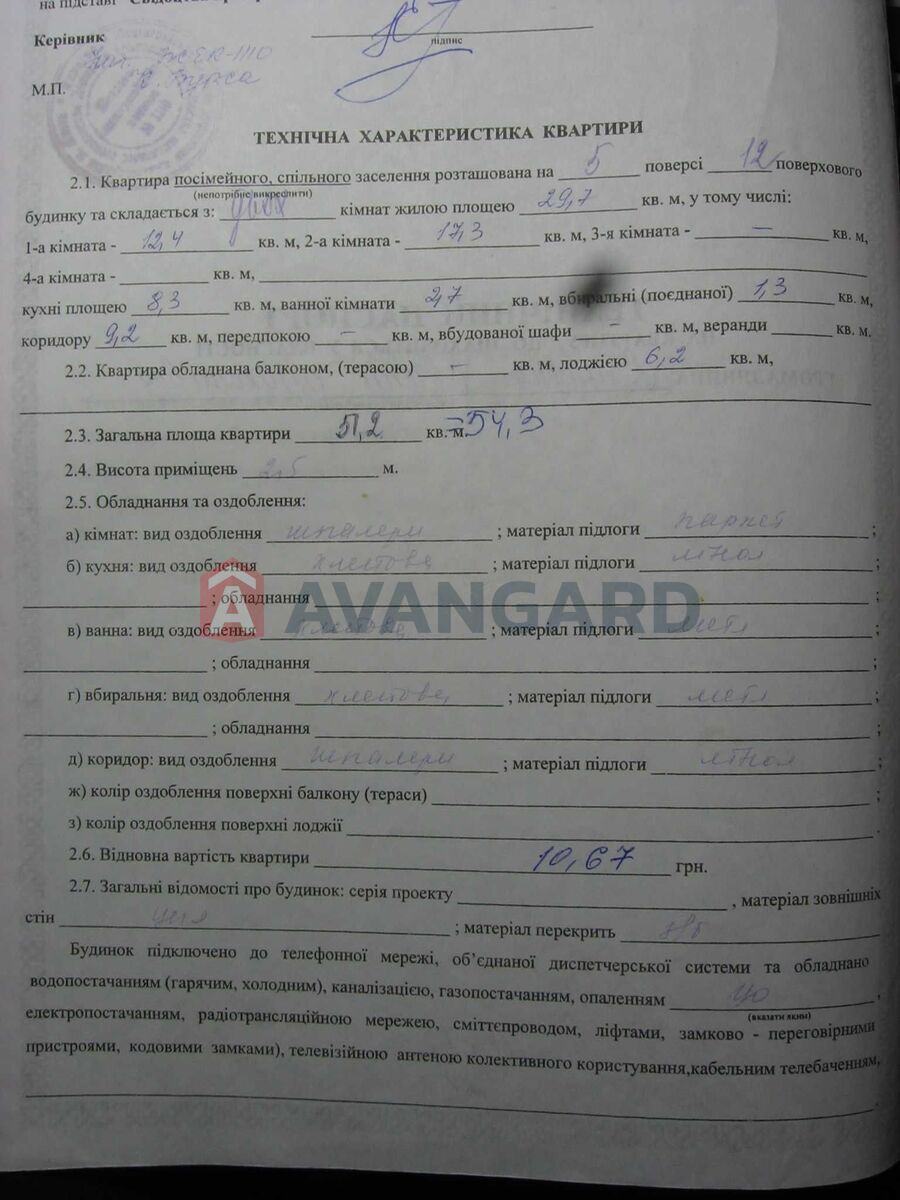 на підставі
Керівник
підпис
М.П.
ТЕХНІЧНА ХАРАКТЕРИСТИКА КВАРТИРИ
2.1. Квартира посімейного, спільного заселення розташована на 5 поверсі 12 поверхового
(непотрібне викреслити)
будинку та складається з: кімнат жилою площею 29,7 кв. м, у тому числі:
1-а кімната - 12,4 кв. м, 2-а кімната - 17,3 кв. м, 3-я кімната - – кв. м,
4-а кімната - кв. м,
кухні площею 8,3 кв. м, ванної кімнати 2,7 кв. м, вбиральні (поєднаної) 1,3 кв. м,
коридору 9,2 кв. м, передпокою – кв. м, вбудованої шафи – кв. м, веранди кв. м.
2.2. Квартира обладнана балконом, (терасою) – кв. м, лоджією 6,2 кв. м,
2.3. Загальна площа квартири 51,2 кв. м. 54,3
2.4. Висота приміщень 2,5 м.
2.5. Обладнання та оздоблення:
а) кімнат: вид оздоблення шпалери ; матеріал підлоги паркет ;
б) кухня: вид оздоблення ; матеріал підлоги лінол ;
; обладнання ;
AVANGARD
в) ванна: вид оздоблення ; матеріал підлоги ;
; обладнання ;
г) вбиральня: вид оздоблення ; матеріал підлоги ;
; обладнання ;
д) коридор: вид оздоблення шпалери ; матеріал підлоги лінол ;
ж) колір оздоблення поверхні балкону (тераси) ;
з) колір оздоблення поверхні лоджії .
2.6. Відновна вартість квартири 10,67 грн.
2.7. Загальні відомості про будинок: серія проекту , матеріал зовнішніх
стін ; матеріал перекрить
Будинок підключено до телефонної мережі, об’єднаної диспетчерської системи та обладнано
водопостачанням (гарячим, холодним), каналізацією, газопостачанням, опаленням цо ,
(вказати яким)
електропостачанням, радіотрансляційною мережею, сміттєпроводом, ліфтами, замково - переговірними
пристроями, кодовими замками), телевізійною антеною колективного користування,кабельним телебаченням,